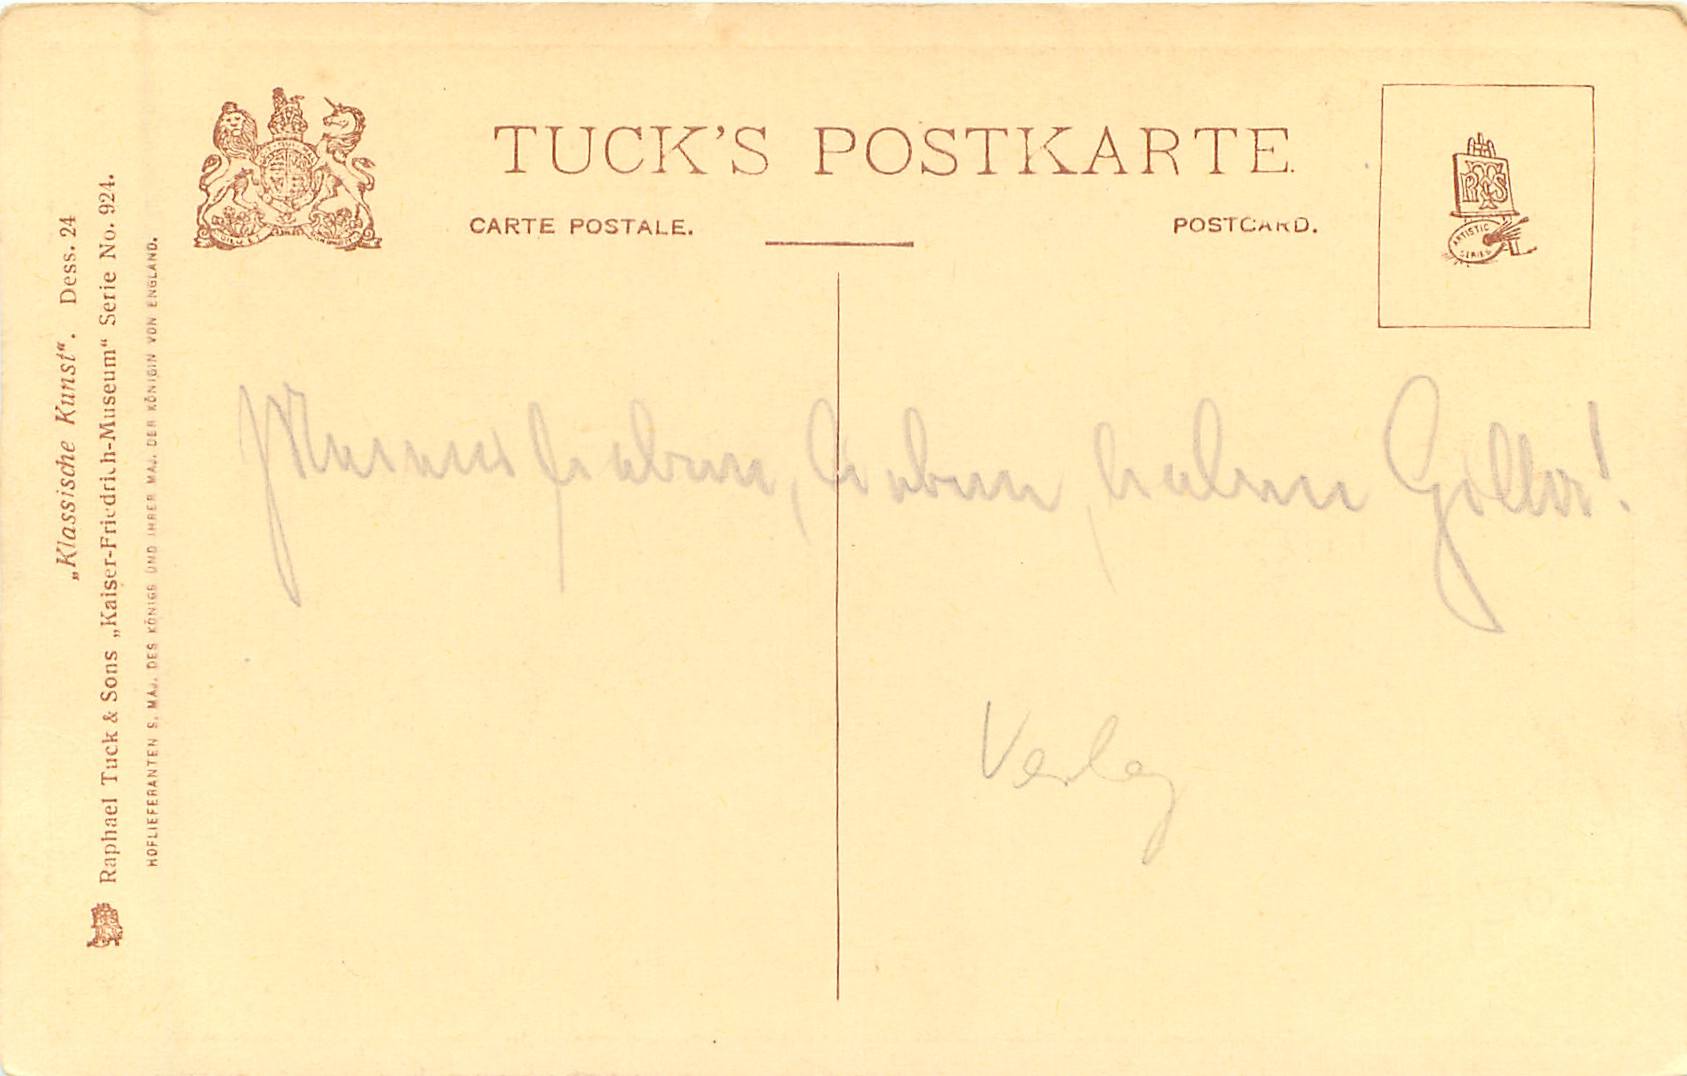 TUCK'S POSTKARTE.
CARTE POSTALE.
POSTCARD.
ARTISTIC
SERIES
Verlag
„Klassische Kunst“. Dess. 24
Raphael Tuck & Sons „Kaiser-Friedrich-Museum“ Serie No. 924.
HOFLIEFERANTEN S. MAJ. DES KÖNIGS UND IHRER MAJ. DER KÖNIGIN VON ENGLAND.